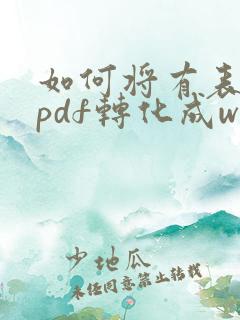 如何将有表
pdf转化成w
少地瓜
未经同意禁止转载